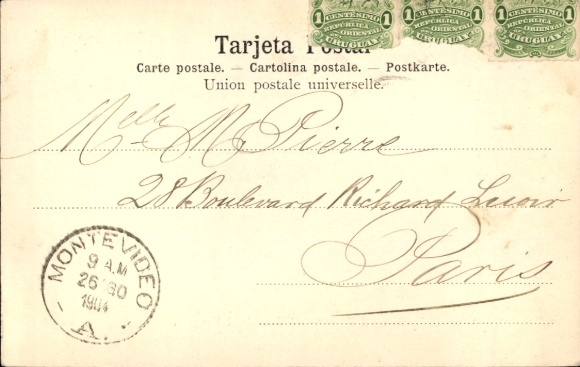 1 CENTÉSIMO 1
REPÚBLICA
ORIENTAL
URUGUAY
1 CENTÉSIMO 1
REPÚBLICA
ORIENTAL
URUGUAY
1 CENTÉSIMO 1
REPÚBLICA
ORIENTAL
URUGUAY
Tarjeta Postal
Carte postale. — Cartolina postale. — Postkarte.
Union postale universelle.
Melle M. Pierre
28 Boulevard Richard Lenoir
Paris
MONTEVIDEO
9 A.M
26
1904
- A. -